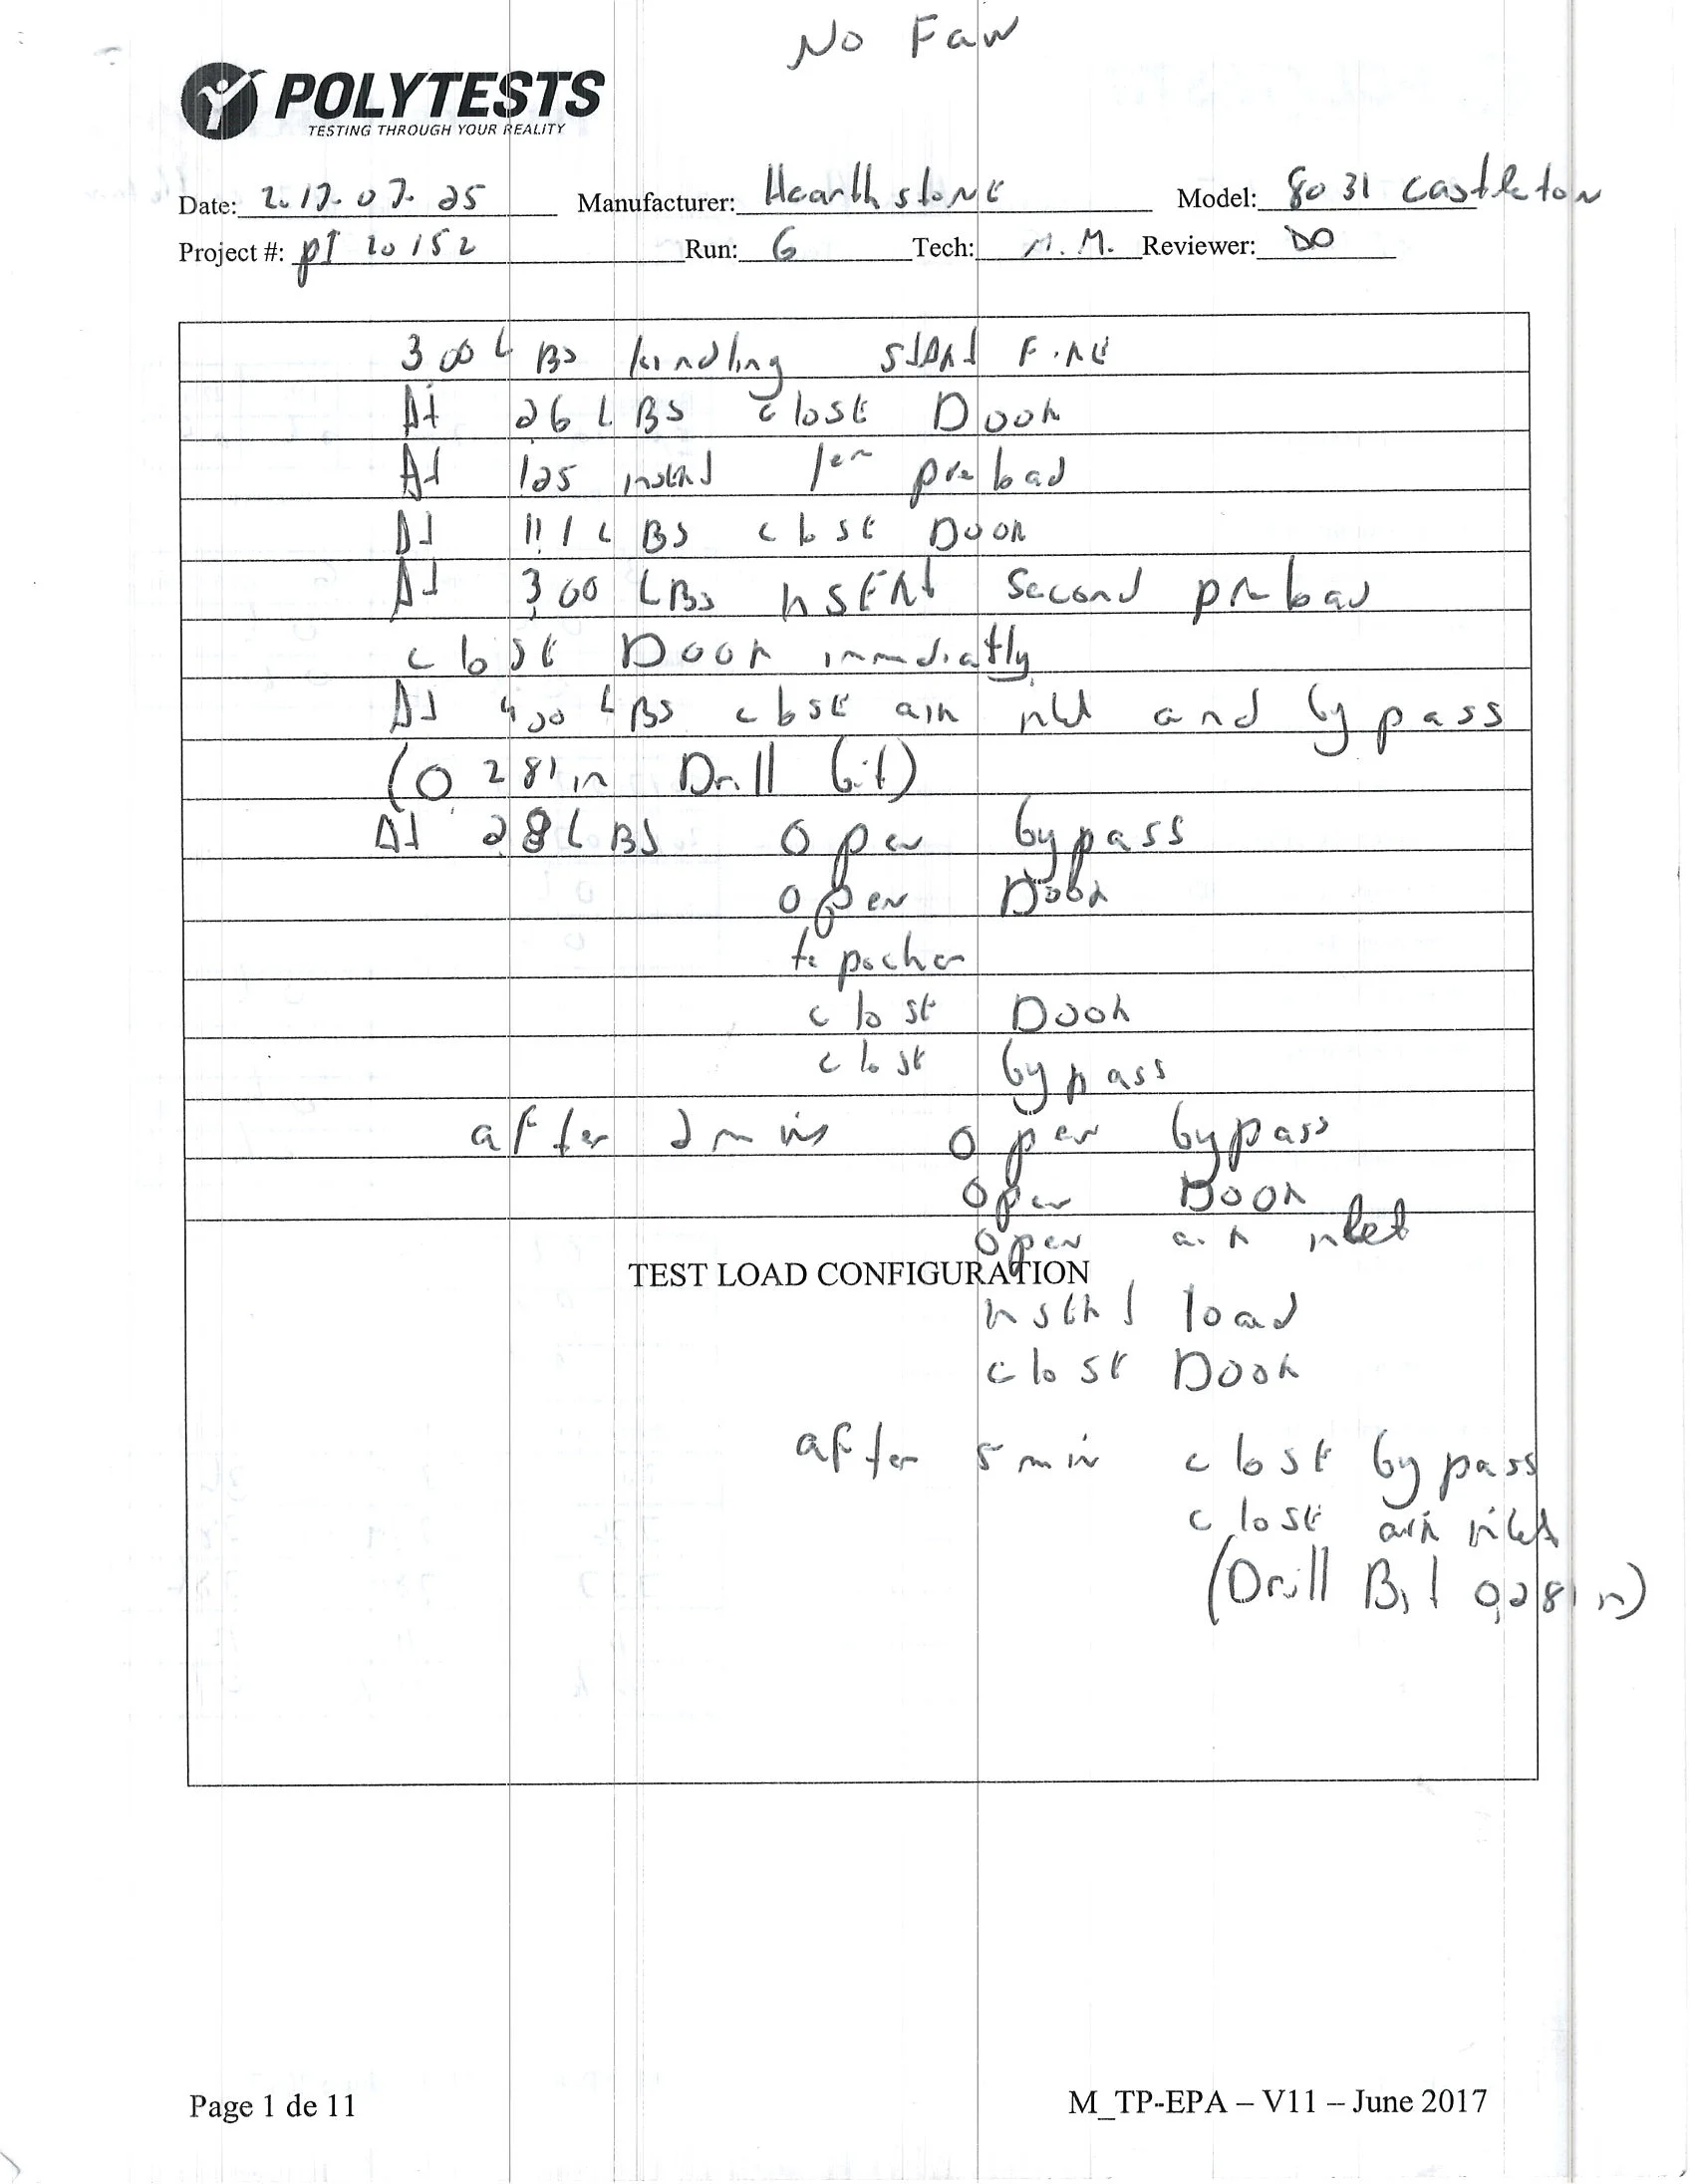 No Fan
POLYTESTS
TESTING THROUGH YOUR REALITY
Date: 2017-07-25 Manufacturer: Hearthstone Model: 8031 Castleton
Project #: PI 20152 Run: 6 Tech: M.M. Reviewer: DO
3.00 LBS kindling start Fire
At 2.6 LBS close Door
At 1.25 insert 1er preload
At 11.1 LBS close Door
At 3.00 LBS insert second preload
close Door immediatly
At 4.00 LBS close air inlet and by pass
(0.281 in Drill bit)
At 2.8 LBS open by pass
open Door
close Door
close by pass
after 2 mins open by pass
open Door
open air inlet
TEST LOAD CONFIGURATION
insert load
close Door
after 5 min close by pass
close air inlet
(Drill Bit 0,281 in)
Page 1 de 11
M_TP-EPA – V11 – June 2017